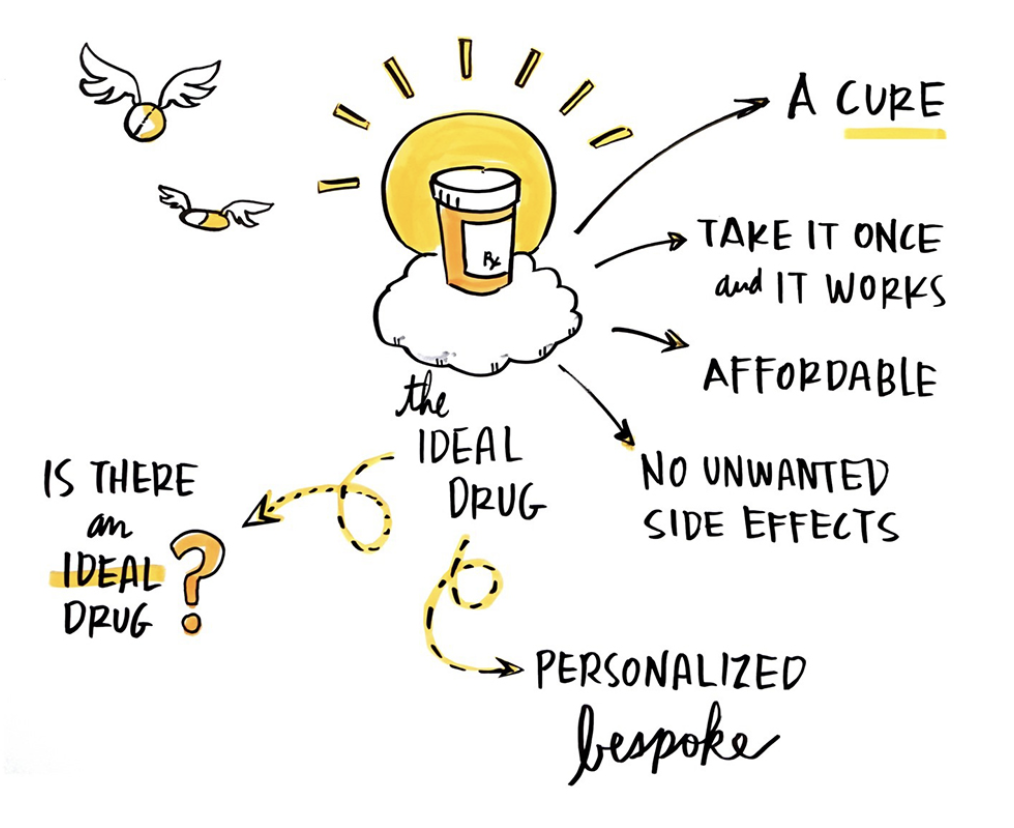 A CURE
TAKE IT ONCE
and IT WORKS
AFFORDABLE
NO UNWANTED
SIDE EFFECTS
Rx
the
IDEAL
DRUG
IS THERE
an
IDEAL
DRUG ?
PERSONALIZED
bespoke